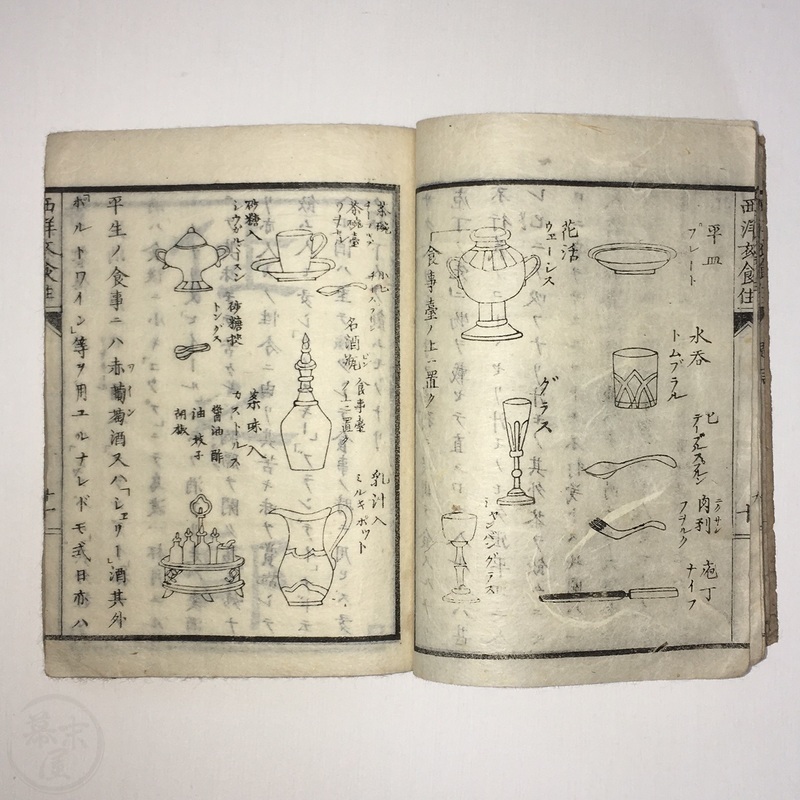 西洋衣食住
平皿
プレート
水呑
トムブラル
匕
テーブルスプン
肉刺
ニクサシ
フヲルク
庖丁
ナイフ
花活
ウェーシス
グラス
シャンパングラス
食事臺ノ上ニ置ク
茶碗
茶碗臺
名酒瓶
ビン
食事臺
ノ上ニ置ク
乳汁入
ミルキポット
砂糖入
砂糖挾
トングス
薬味入
カストルス
醤油
酢
油
芥子
胡椒
平生ノ食事ニハ赤葡萄酒又ハ「シェリー」酒其外
ワーン
「ポルトワイン」等ヲ用ユルナレドモ式日亦ハ
西洋衣食住
十一